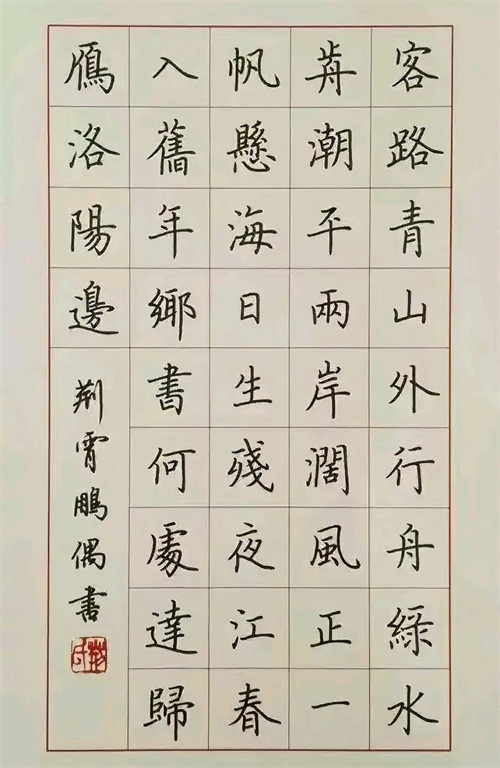 客路青山外行舟綠水
前潮平兩岸濶風正一
帆懸海日生殘夜江春
入舊年鄉書何處達歸
鴈洛陽邊
荆霄鵬偶書